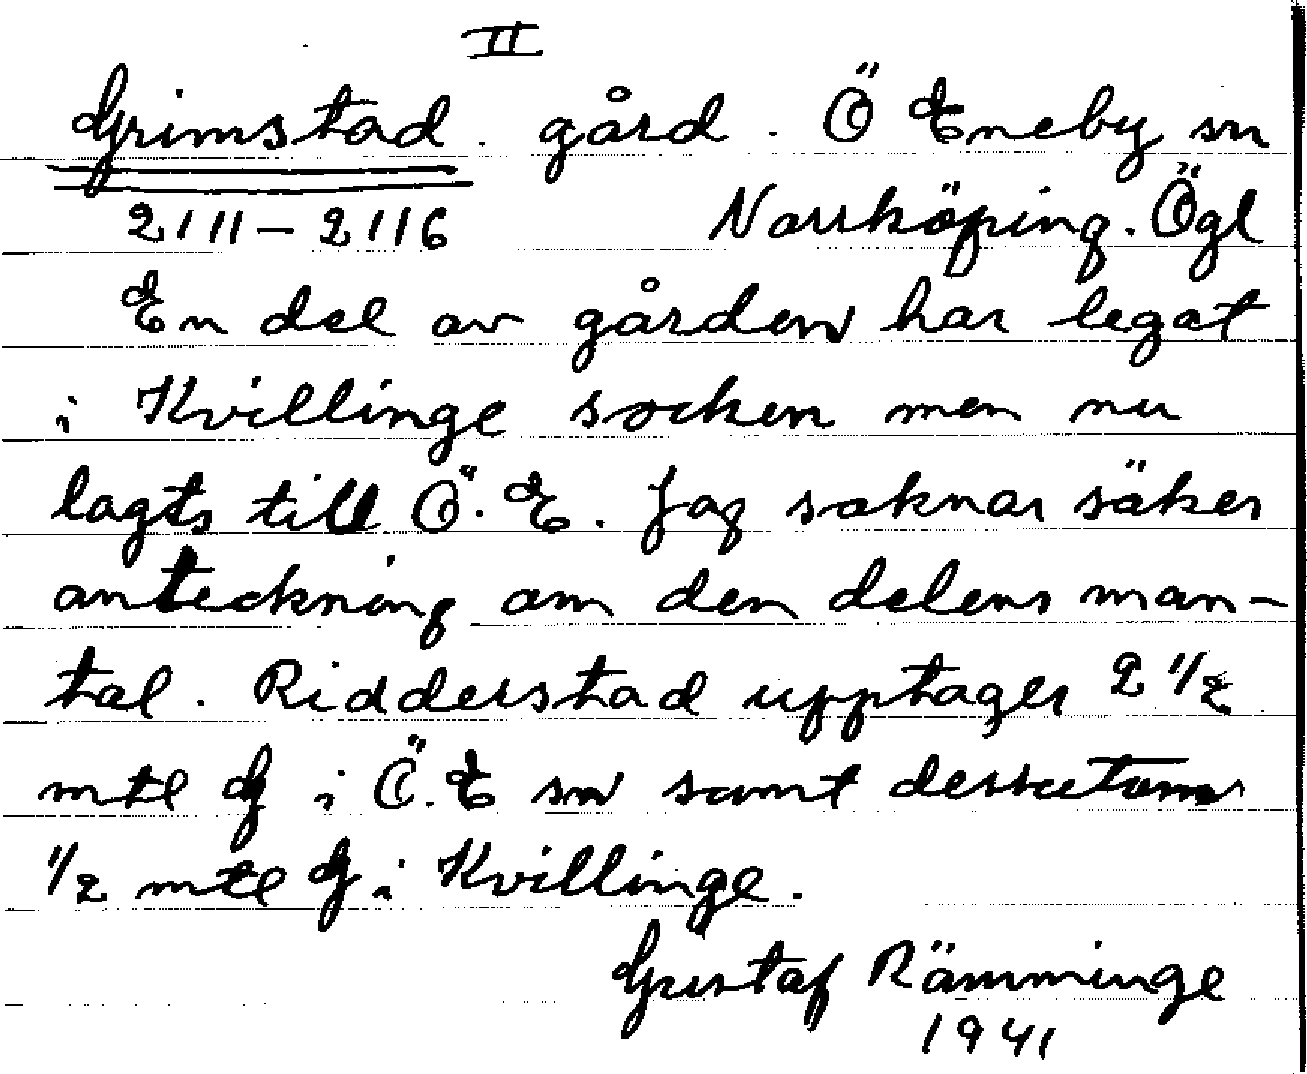 II
Grimstad. gård. Ö Eneby sn
2111–2116 Norrköping. Ögl
En del av gården har legat
i Kvillinge socken men nu
lagts till Ö. E. Jag saknar säker
anteckning om den delens man-
tal. Ridderstad upptager 2 1/2
mtl G i Ö. E sn samt dessutom
1/2 mtl G i Kvillinge.
Gustaf Rämminge
1941